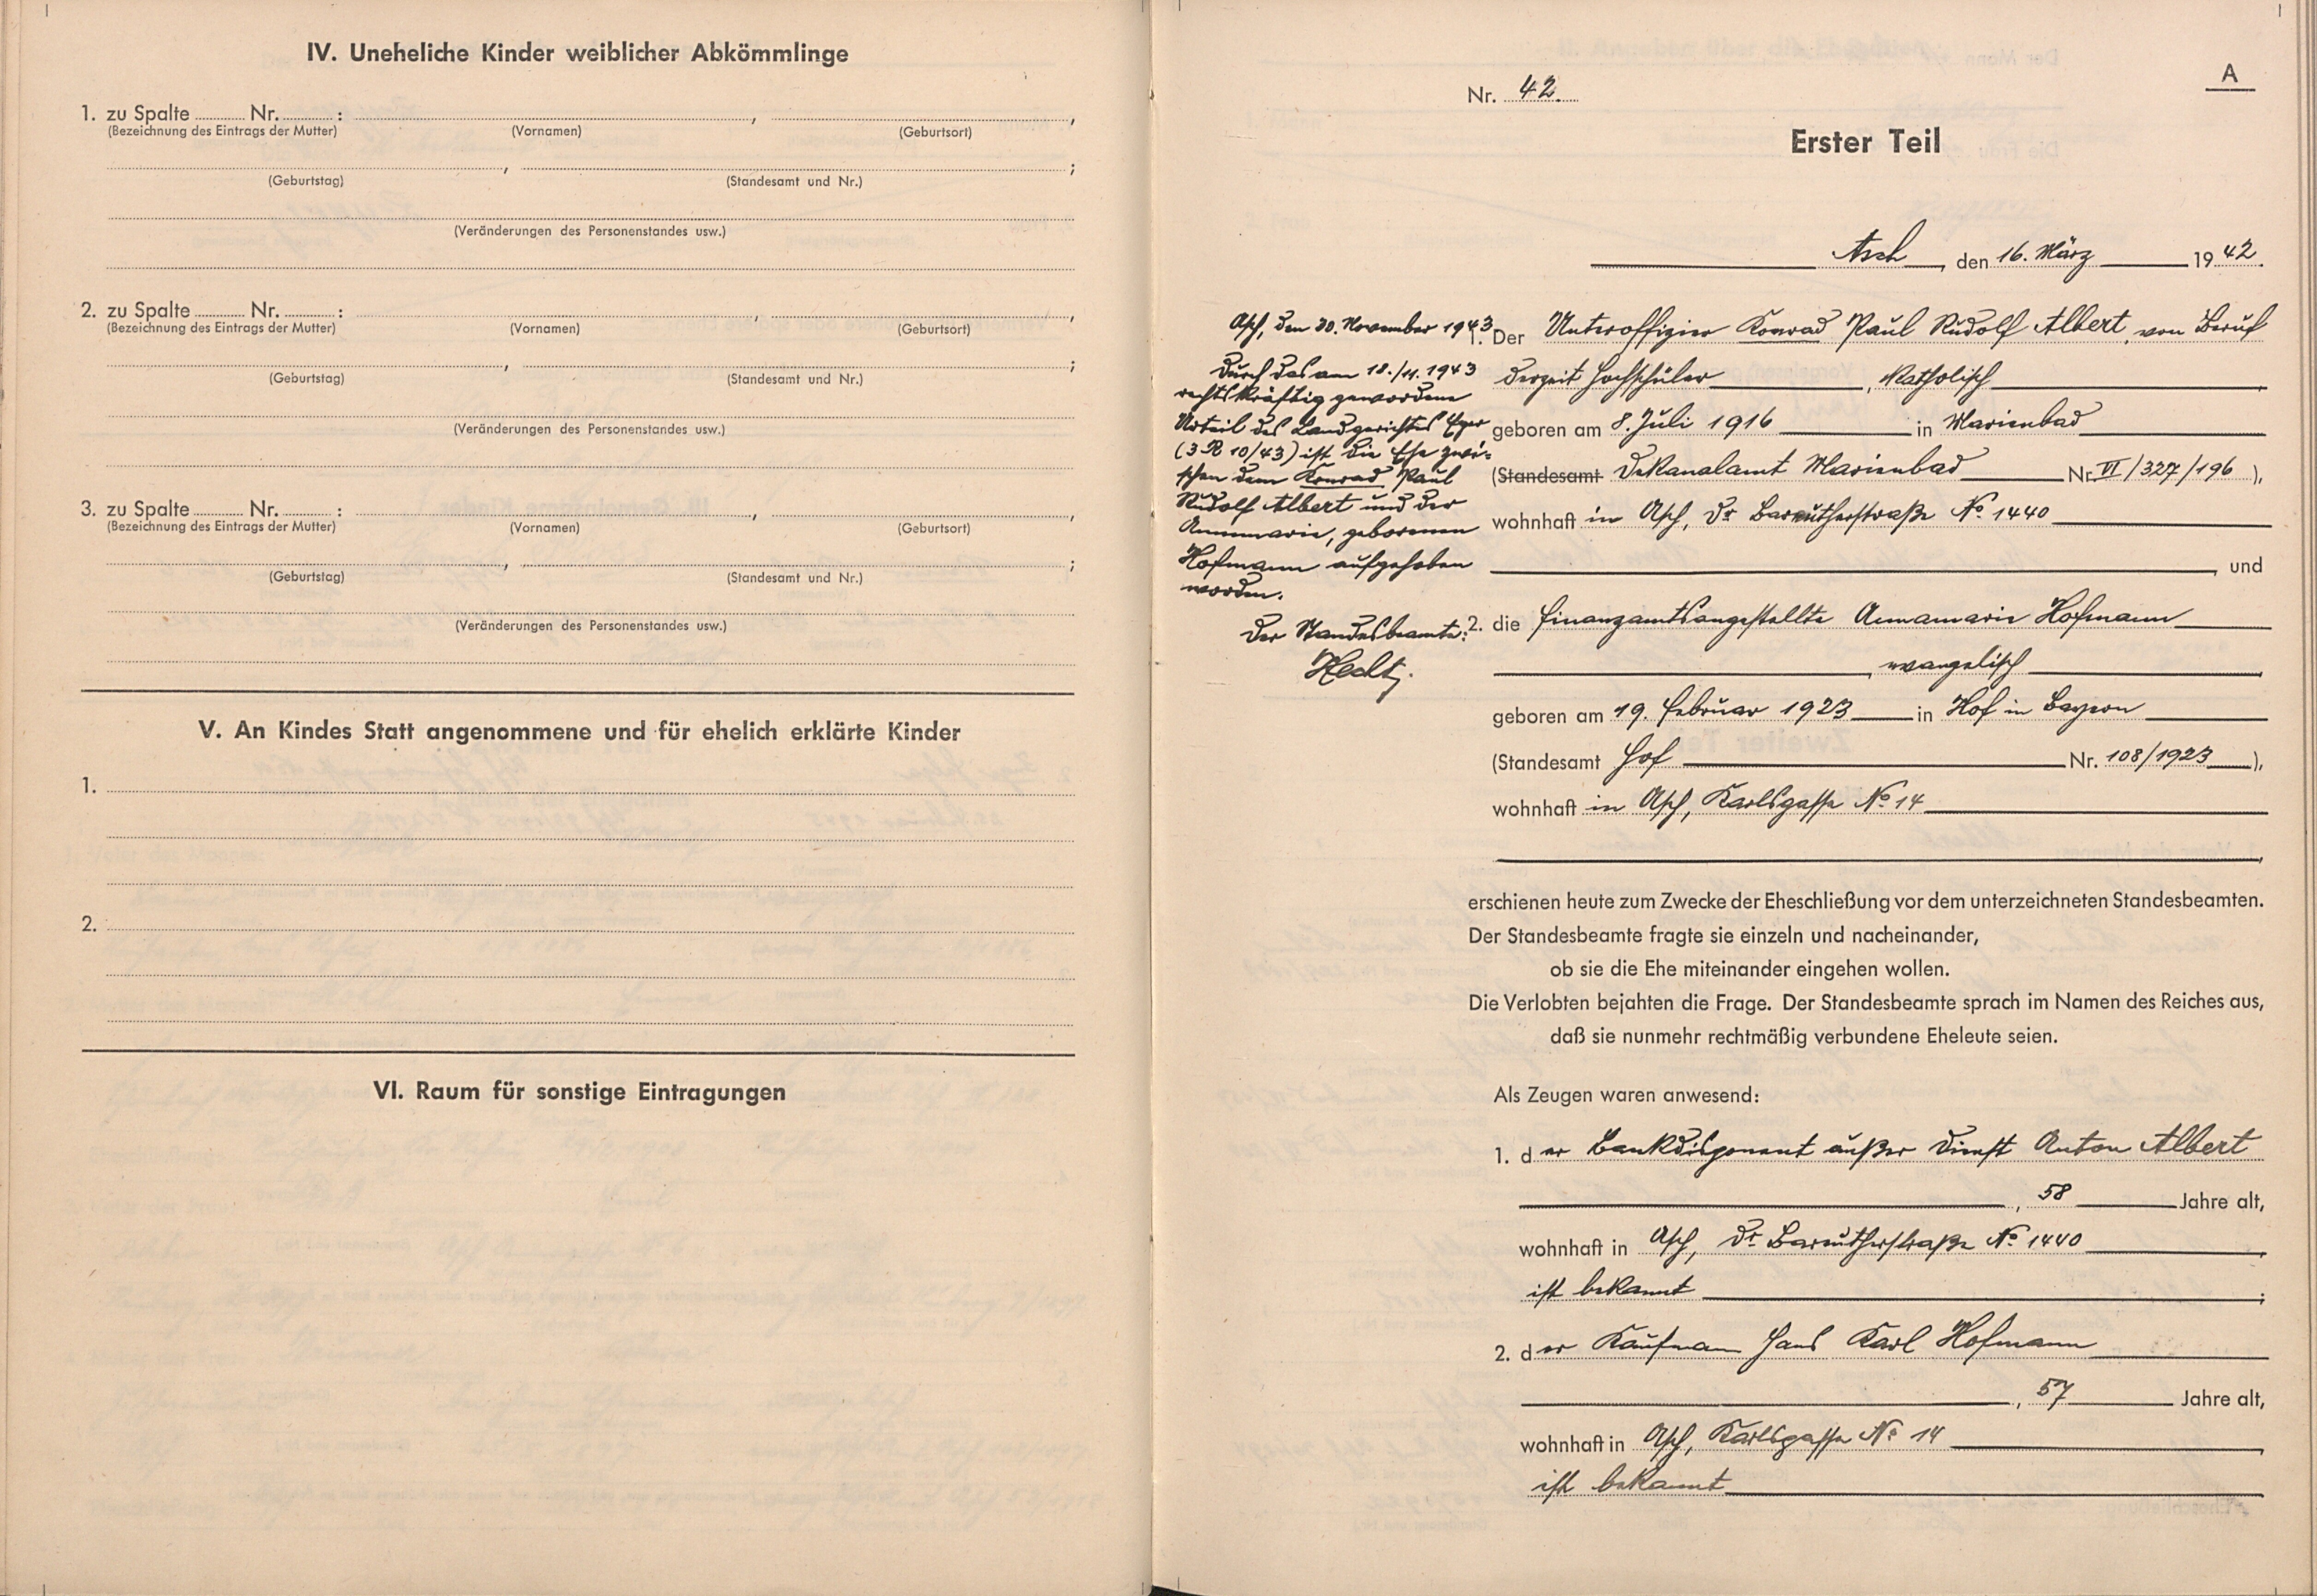 IV. Uneheliche Kinder weiblicher Abkömmlinge
1. zu Spalte ........ Nr. ........ : , ,
(Bezeichnung des Eintrags der Mutter) (Vornamen) (Geburtsort)
, ;
(Geburtstag) (Standesamt und Nr.)
(Veränderungen des Personenstandes usw.)
2. zu Spalte ........ Nr. ........ : , ,
(Bezeichnung des Eintrags der Mutter) (Vornamen) (Geburtsort)
, ;
(Geburtstag) (Standesamt und Nr.)
(Veränderungen des Personenstandes usw.)
3. zu Spalte ........ Nr. ........ : , ,
(Bezeichnung des Eintrags der Mutter) (Vornamen) (Geburtsort)
, ;
(Geburtstag) (Standesamt und Nr.)
(Veränderungen des Personenstandes usw.)
V. An Kindes Statt angenommene und für ehelich erklärte Kinder
1.
2.
VI. Raum für sonstige Eintragungen
A
Nr. 42.
Erster Teil
Asch, den 16. März 1942.
Asch, den 30. November 1943.
Durch das am 18./11. 1943
rechtskräftig gewordene
Urteil des Landgerichtes Eger
(3 R 10/43) ist die Ehe zwi-
schen dem Konrad Paul
Rudolf Albert und der
Annemarie, geborenen
Hofmann aufgehoben
worden.
Der Standesbeamte:
Hecht.
1. Der Unteroffizier Konrad Paul Rudolf Albert, von Beruf
derzeit Hochschüler, katholisch,
geboren am 8. Juli 1916 in Marienbad
(Standesamt Dekanalamt Marienbad Nr. VI/327/196),
wohnhaft in Asch, Dr. Bareutherstraße No. 1440
, und
2. die Finanzamtsangestellte Annamarie Hofmann
, evangelisch,
geboren am 19. Februar 1923 in Hof in Bayern
(Standesamt Hof Nr. 108/1923),
wohnhaft in Asch, Karlsgasse No. 14
,
erschienen heute zum Zwecke der Eheschließung vor dem unterzeichneten Standesbeamten.
Der Standesbeamte fragte sie einzeln und nacheinander,
ob sie die Ehe miteinander eingehen wollen.
Die Verlobten bejahten die Frage. Der Standesbeamte sprach im Namen des Reiches aus,
daß sie nunmehr rechtmäßig verbundene Eheleute seien.
Als Zeugen waren anwesend:
1. der Bankdisponent außer Dienst Anton Albert
, 58 Jahre alt,
wohnhaft in Asch, Dr. Bareutherstraße No. 1440,
ist bekannt ;
2. der Kaufmann Hans Karl Hofmann
, 57 Jahre alt,
wohnhaft in Asch, Karlsgasse No. 14,
ist bekannt